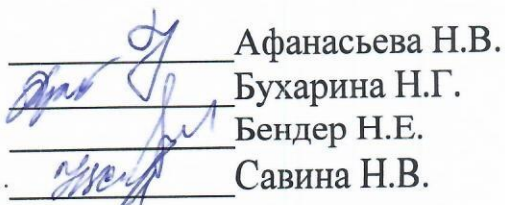 Афанасьева Н.В.
Бухарина Н.Г.
Бендер Н.Е.
Савина Н.В.